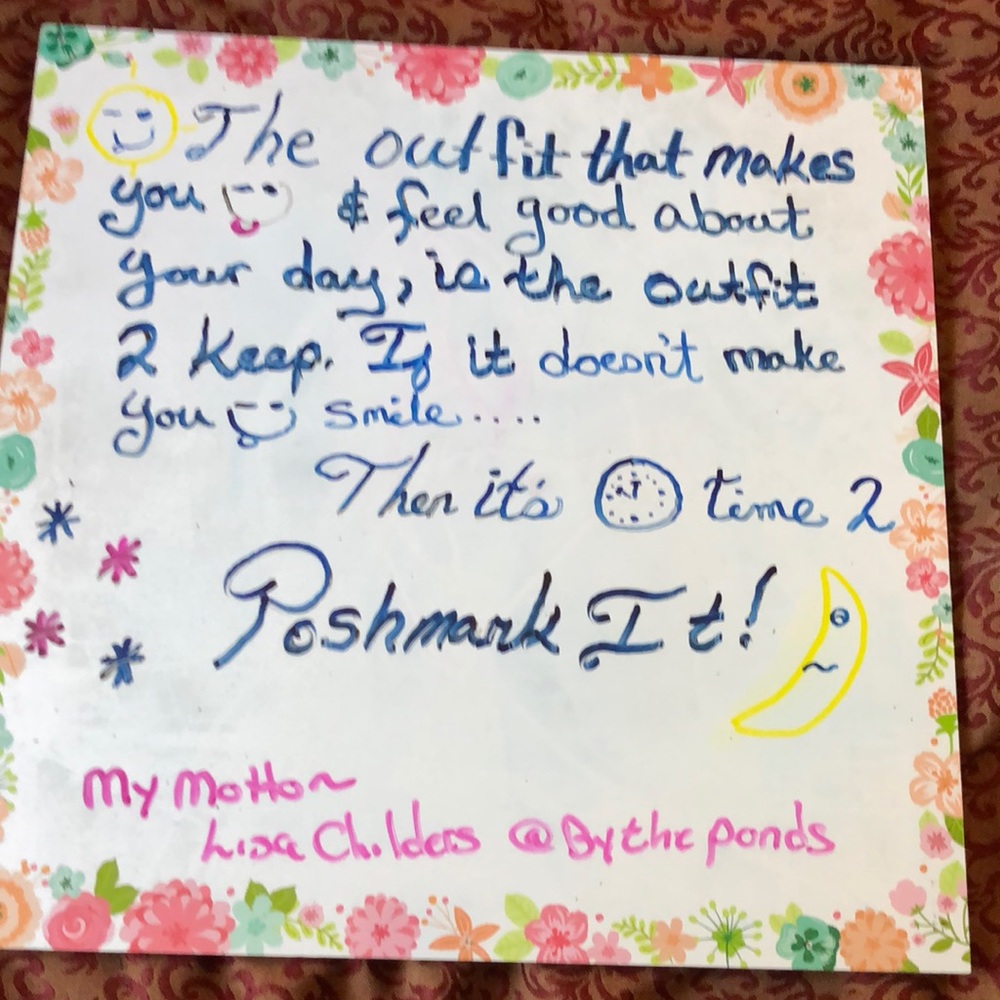 The outfit that makes
you & feel good about
your day, is the outfit
2 keep. If it doesn't make
you smile.....
Then it's time 2
Poshmark It!
My Motto~
Lisa Childers @Bytheponds